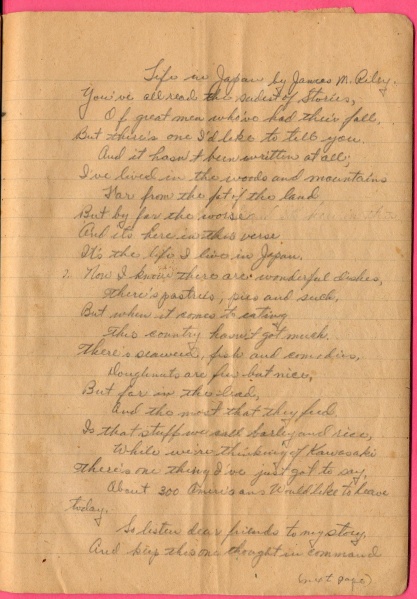 Life in Japan by James M. Riley.
You've all read the sadest of Stories,
Of great men who've had their fall,
But there's one I'd like to tell you.
And it hasn't been written at all;
I've lived in the woods and mountains
Far from the fat of the land
But by far the worse
And its here in this verse
It's the life I live in Japan.
2. Now I know there are wonderful dishes,
There's pastries, pies and such,
But when it comes to eating
This country hasn't got much.
There's seaweed, fish and
Doughnuts are few but nice,
But far in the lead,
And the most that they feed
Is that stuff we call barley and rice,
While we're thinking of Kawasaki
There's one thing I've just got to say,
About 300 Americans Would like to leave
today.
So listen dear friends to my story
And keep this one thought in command
(next page)